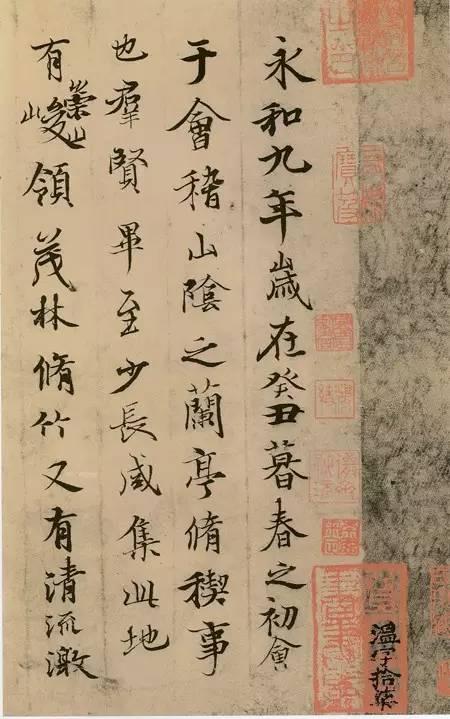 溫字拾柒
永和九年歲在癸丑暮春之初會
于會稽山陰之蘭亭脩稧事
也羣賢畢至少長咸集此地
有崇山峻領茂林脩竹又有清流激